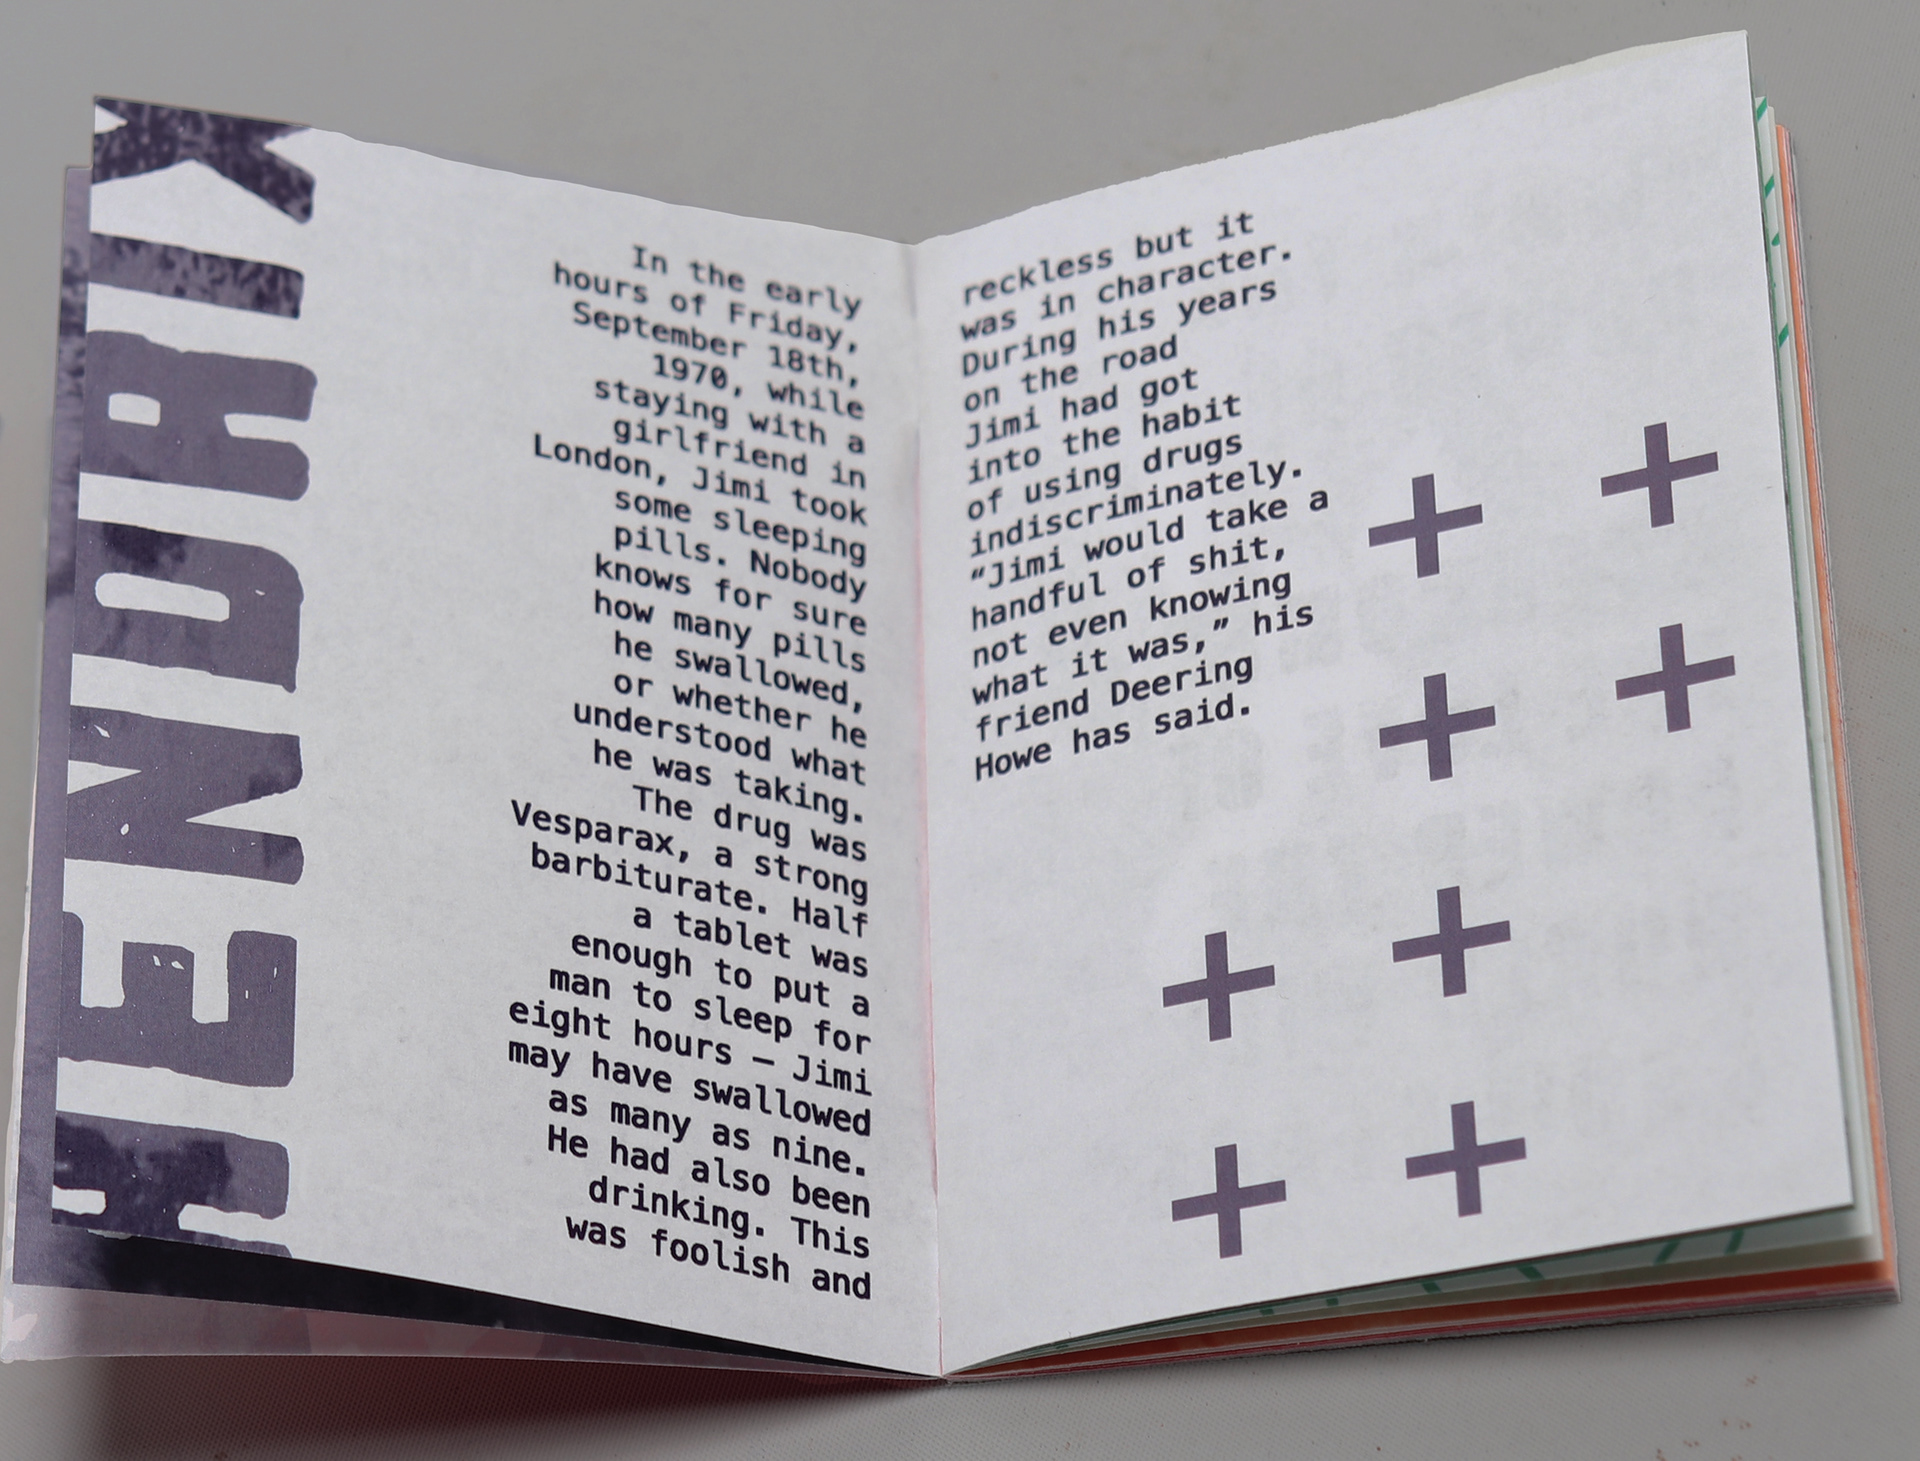 HENDRIX
In the early
hours of Friday,
September 18th,
1970, while
staying with a
girlfriend in
London, Jimi took
some sleeping
pills. Nobody
knows for sure
how many pills
he swallowed,
or whether he
understood what
he was taking.
The drug was
Vesparax, a strong
barbiturate. Half
a tablet was
enough to put a
man to sleep for
eight hours – Jimi
may have swallowed
as many as nine.
He had also been
drinking. This
was foolish and
reckless but it
was in character.
During his years
on the road
Jimi had got
into the habit
of using drugs
indiscriminately.
“Jimi would take a
handful of shit,
not even knowing
what it was,” his
friend Deering
Howe has said.